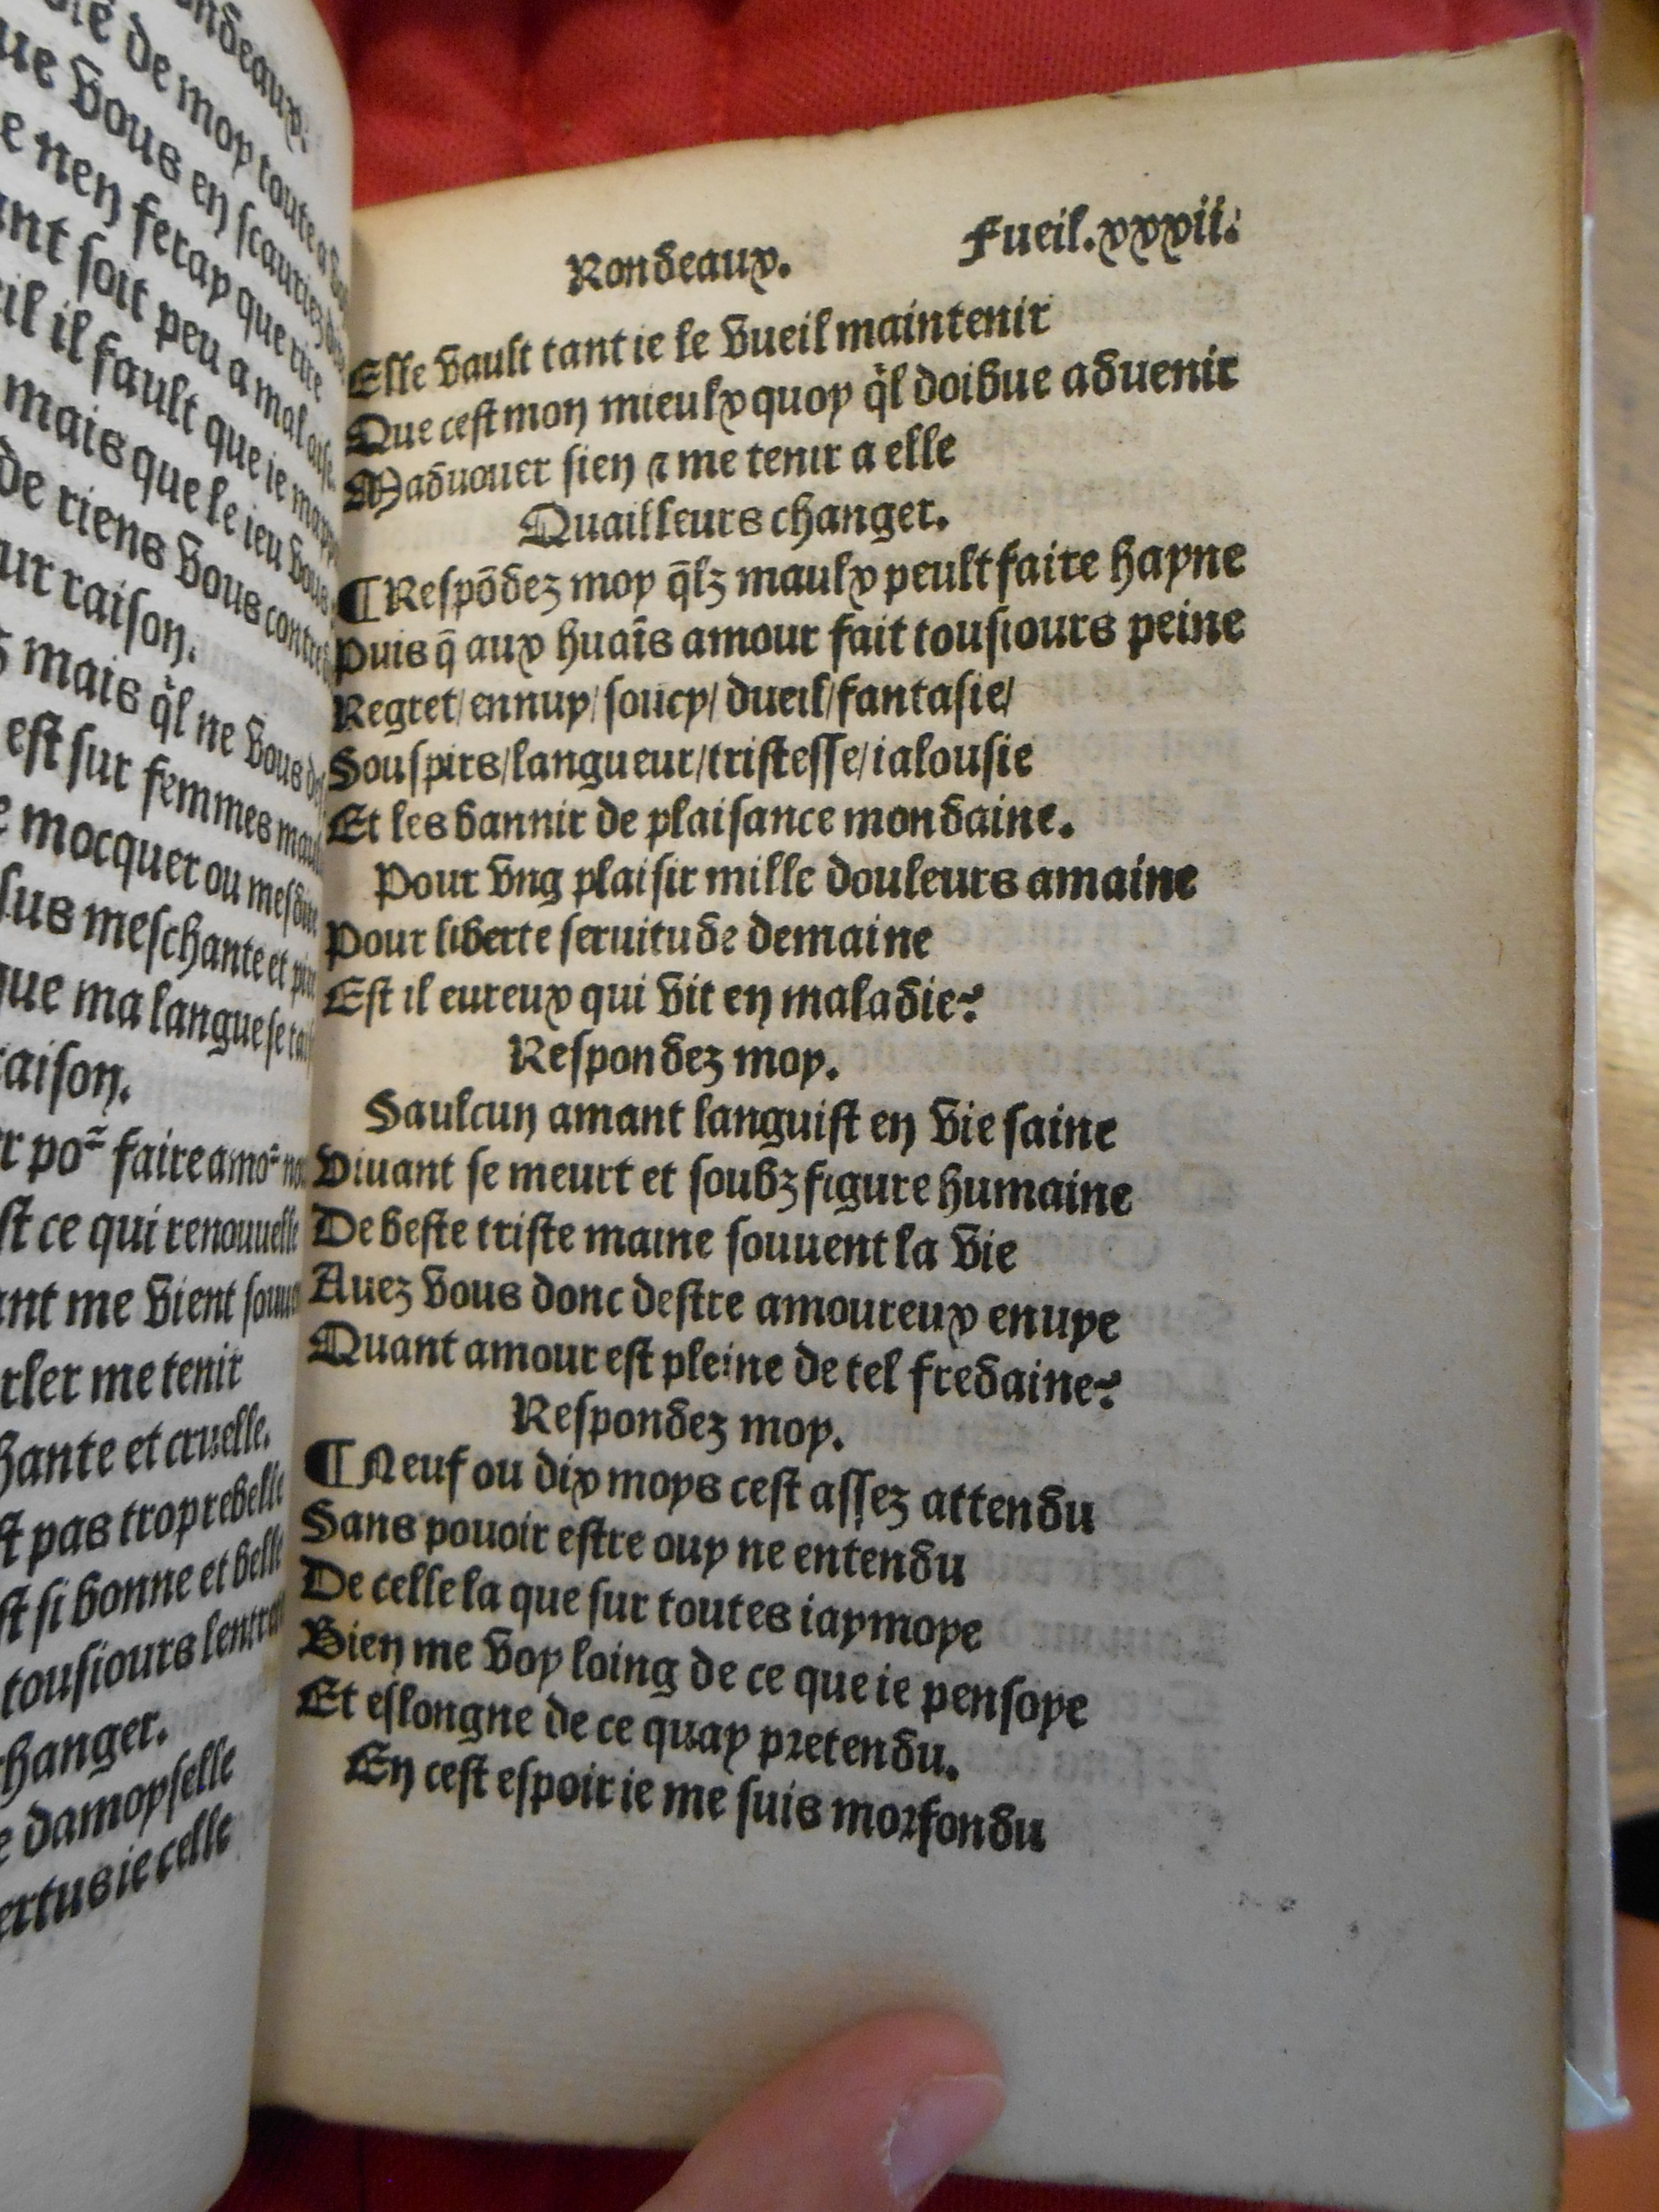 ndeaux.
de moy toute a
ue vous en scauriez
e nen feray que rire
ant soit peu a mal aise
il il fault que ie
mais que le ieu vous
de riens vous
ur raison.
mais q̃l ne vous
est sur femmes
e mocquer ou mesdire
sus meschante et
que ma langue se
raison.
r po᷑ faire amo᷑
st ce qui renouuelle
ant me vient
rler me tenir
hante et cruelle.
st pas trop rebelle
st si bonne et belle
tousiours
hanger.
e damoyselle
ertus ie celle
Rondeaux. Fueil.xxxvii.
Elle vault tant ie le vueil maintenir
Que cest mon mieulx quoy q̃l doibue aduenir
Maduouer sien ⁊ me tenir a elle
Quailleurs changer.
¶Respōdez moy q̃lz maulx peult faire hayne
Puis q̄ aux huaīs amour fait tousiours peine
Regret/ennuy/soucy/dueil/fantasie/
Souspirs/langueur/tristesse/ialousie
Et les bannir de plaisance mondaine.
Pour vng plaisir mille douleurs amaine
Pour liberte seruitude demaine
Est il eureux qui vit en maladie?
Respondez moy.
Saulcun amant languist en vie saine
Viuant se meurt et soubz figure humaine
De beste triste maine souuent la vie
Auez vous donc destre amoureux enuye
Quant amour est pleine de tel fredaine?
Respondez moy.
¶Neuf ou dix moys cest assez attendu
Sans pouoir estre ouy ne entendu
De celle la que sur toutes iaymoye
Bien me voy loing de ce que ie pensoye
Et eslongne de ce quay pretendu.
En cest espoir ie me suis morfondu